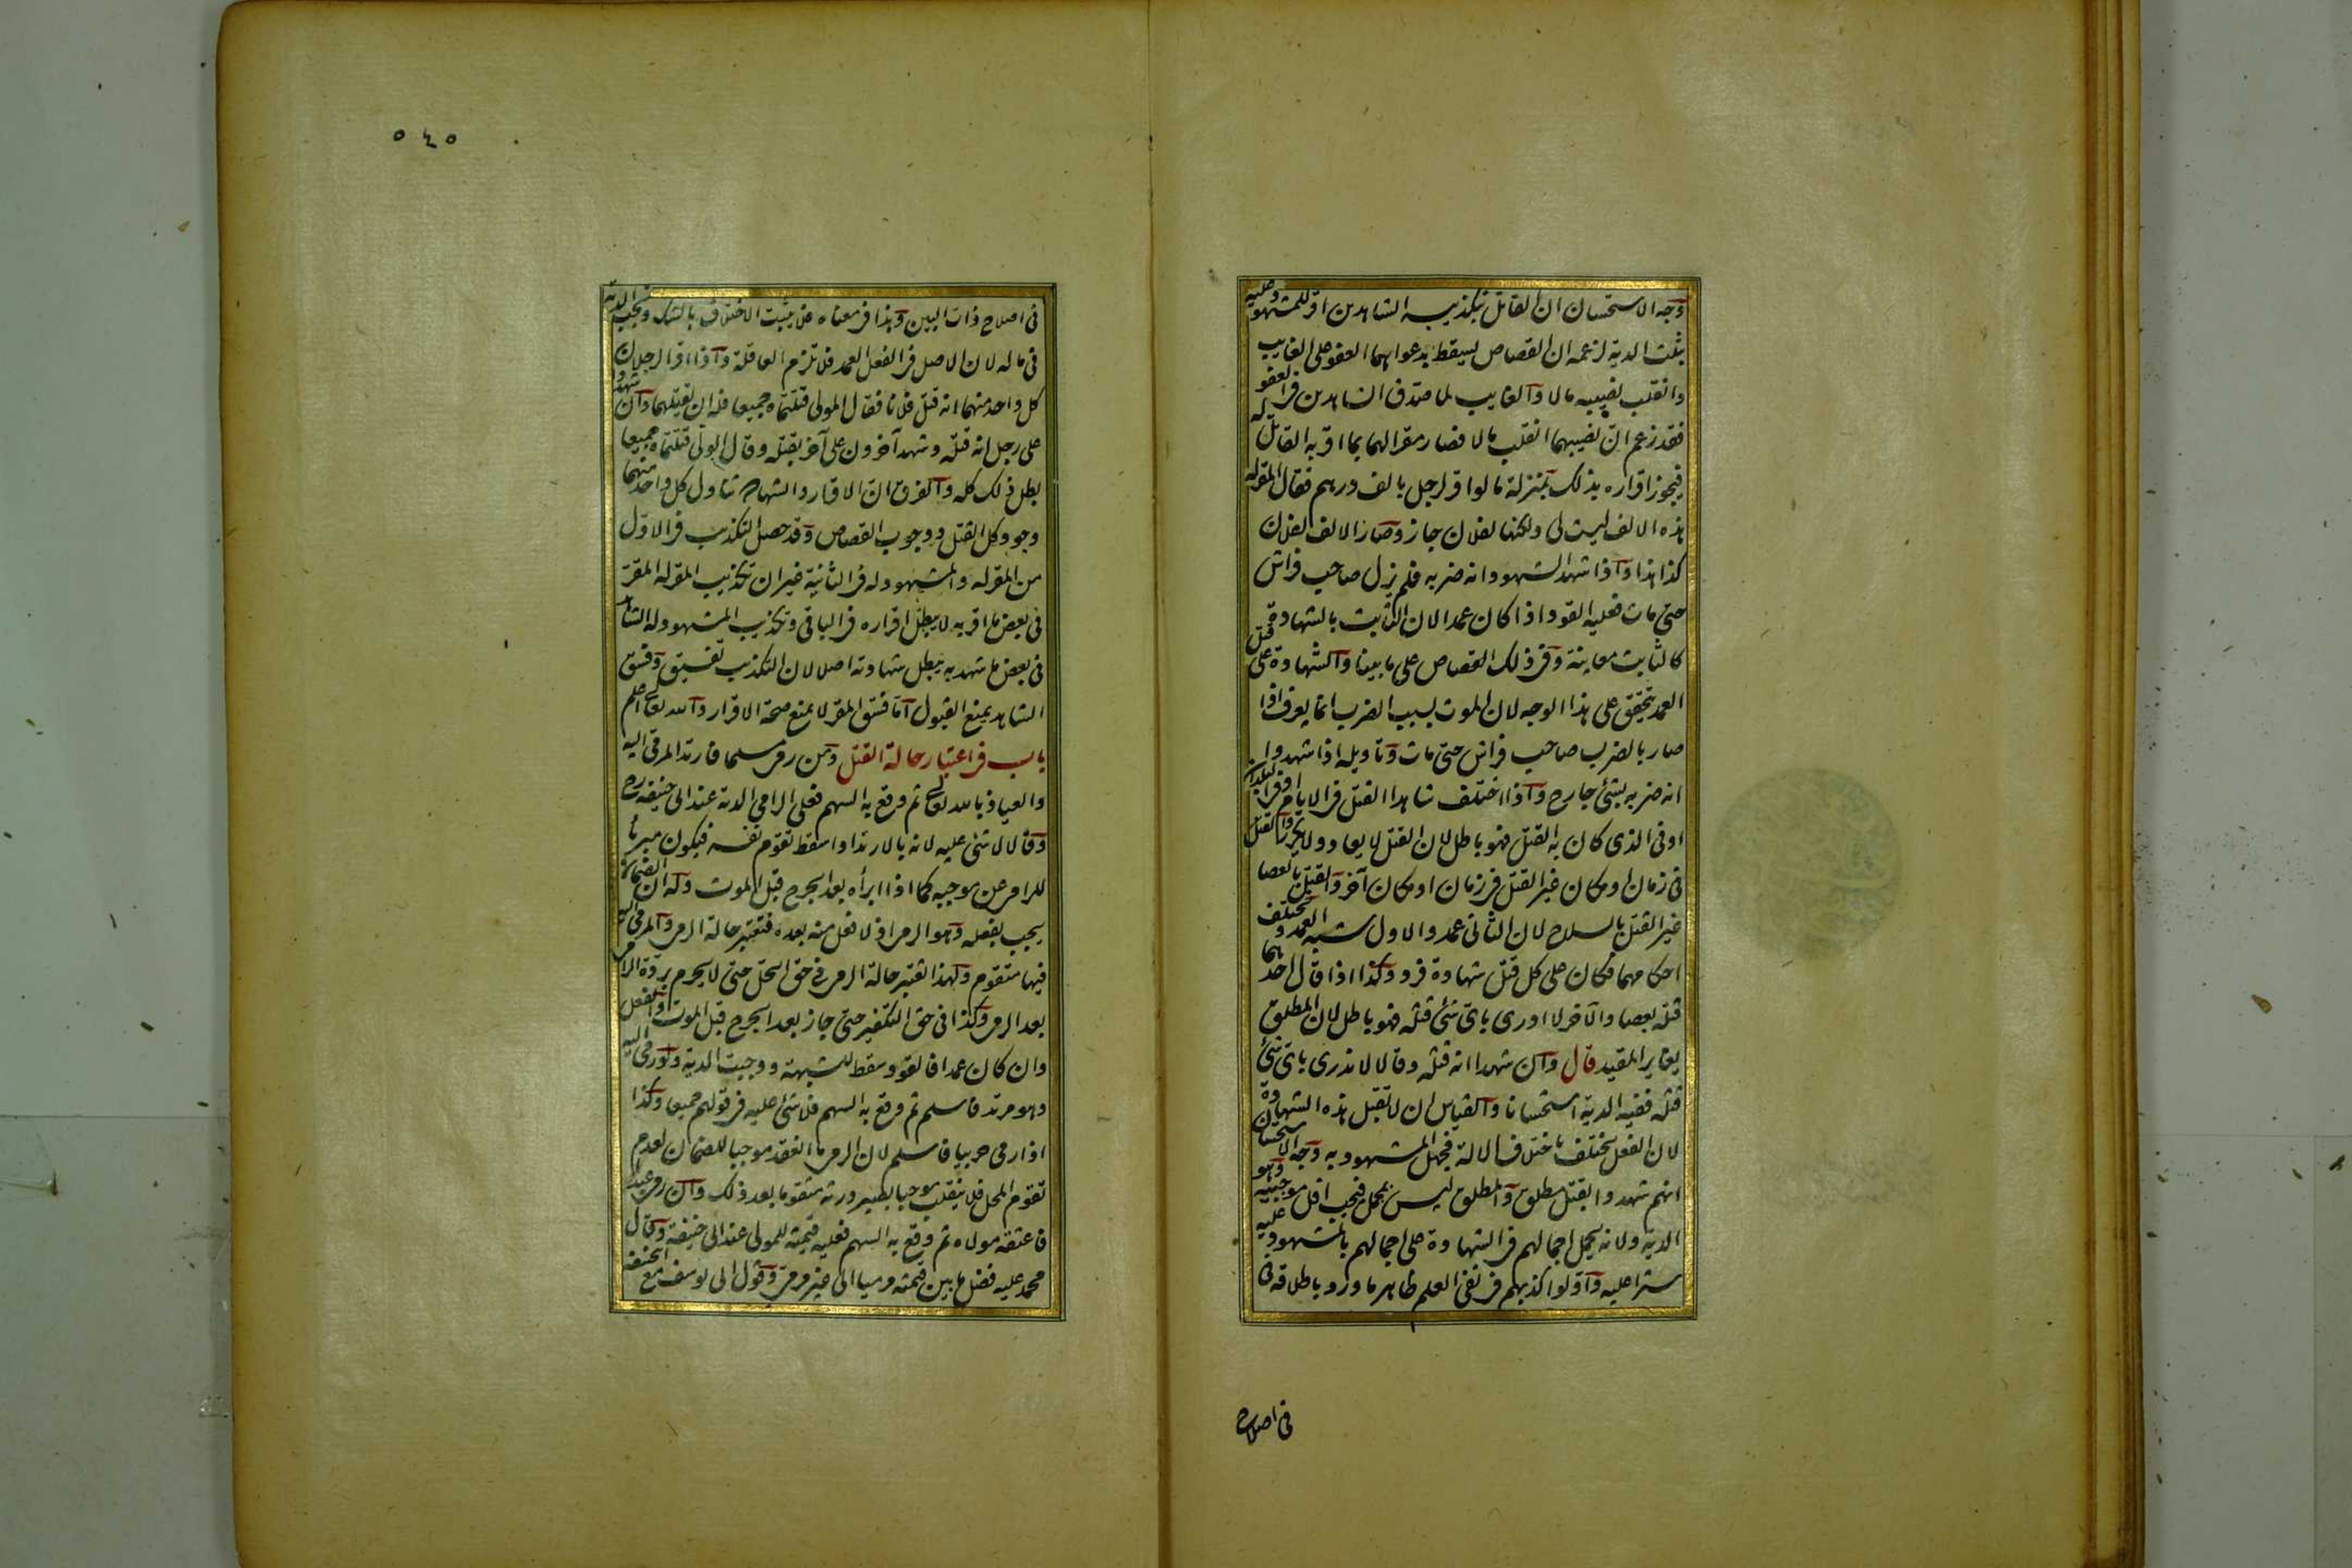 وجه الاستحسان ان القاتل بتكذيب الشاهدين اقر للمشهود عليه
بثلث الدية لزعمه ان القصاص يسقط بدعواهما العفو على الغايب
وانقلب نصيبه مالا والغايب لما صدق الشاهدين فى العفو
فقد زعم ان نصيبهما انقلب مالا فصار مقرا لهما بما اقر به القاتل له
فيجوز اقراره بذلك بمنزلة ما لو اقر لرجل بالف درهم فقال المقر له
هذه الالف ليست لى ولكنها لفلان جاز وصار الالف لفلان
كذا هذا واذا شهد الشهود انه ضربه فلم يزل صاحب فراش
حتى مات فعليه القود اذا كان عمدا لان الثابت بالشهادة
كالثابت معاينة وفى ذلك القصاص على ما بينا والشهادة على قتل
العمد يتحقق على هذا الوجه لان الموت بسبب الضرب انما يعرف اذا
صار بالضرب صاحب فراش حتى مات وتاويله اذا شهدوا
انه ضربه بشئ جارح واذا اختلف شاهدا القتل فى الايام او فى البلدان
او فى الذى كان به القتل فهو باطل لان القتل لا يعاد ولا يكرر والقتل
فى زمان او مكان غير القتل فى زمان او مكان آخر والقتل بالعصا
غير القتل بالسلاح لان الثانى عمد والاول شبه العمد ويختلف
احكامهما فكان على كل قتل شهادة فرد وكذا اذا قال احدهما
قتله بعصا والآخر لا ادرى باى شئ قتله فهو باطل لان المطلق
يغاير المقيد قال وان شهدا انه قتله وقالا لا ندرى باى شئ
قتله ففيه الدية استحسانا والقياس ان لا تقبل هذه الشهادة
لان الفعل يختلف باختلاف الآلة فجهل المشهود به وجه الاستحسان
انهم شهدوا بقتل مطلق والمطلق ليس بمجمل فيجب اقل موجبيه وهو
الدية ولانه يحمل اجمالهم فى الشهادة على اجمالهم بالمشهود عليه
سترا عليه واولوا كذبهم فى نفى العلم ظاهر ما ورد باطلاقه فى
فى اصلاح
٥٤٥
فى اصلاح ذات البين وهذا فى معناه فلا يثبت الاختلاف بالشك ويجب الدية
فى ماله لان الاصل فى الفعل العمد فلا تلزم العاقلة واذا اقر الرجلان
كل واحد منهما انه قتل فلانا فقال المولى قتلتماه جميعا فله ان يقتلهما وان شهدوا
على رجل انه قتله وشهد آخرون على آخر بقتله وقال الولى قتلتماه جميعا
بطل ذلك كله والفرق ان الاقرار والشهادة تناول كل واحد منهما
وجود كل القتل ووجوب القصاص وقد حصل التكذيب فى الاول
من المقر له والمشهود له فى الثانية غير ان تكذيب المقر له المقر
فى بعض ما اقر به لا يبطل اقراره فى الباقى وتكذيب المشهود له الشاهد
فى بعض ما شهد به يبطل شهادته اصلا لان التكذيب تفسيق وفسق
الشاهد يمنع القبول اما فسق المقر لا يمنع صحة الاقرار والله تعالى اعلم
باب فى اعتبار حالة القتل ومن رمى مسلما فارتد المرمى اليه
والعياذ بالله تعالى ثم وقع به السهم فعلى الرامى الدية عند ابى حنيفة رح
وقالا لا شئ عليه لانه بالارتداد اسقط تقوم نفسه فيكون مبرئا
للرامى عن موجبه كما اذا ابرأه بعد الجرح قبل الموت وله ان الضمان
يجب بفعله وهو الرمى اذ لا فعل منه بعده فتعتبر حالة الرمى والمرمى اليه
فيها متقوم ولهذا تعتبر حالة الرمى فى حق الحل حتى لا يحرم بردة الرامى
بعد الرمى وكذا فى حق التكفير حتى جاز بعد الجرح قبل الموت والفعل
وان كان عمدا فالقود سقط للشبهة ووجبت الدية ولو رمى اليه
وهو مرتد فاسلم ثم وقع به السهم فلا شئ عليه فى قولهم جميعا وكذا
اذا رمى حربيا فاسلم لان الرمى ما انعقد موجبا للضمان لعدم
تقوم المحل فلا ينقلب موجبا بصيرورته متقوما بعد ذلك وان رمى عبدا
فاعتقه مولاه ثم وقع به السهم فعليه قيمته للمولى عند ابى حنيفة وقال
محمد عليه فضل ما بين قيمته مرميا الى غير مرمى وقول ابى يوسف مع ابى حنيفة